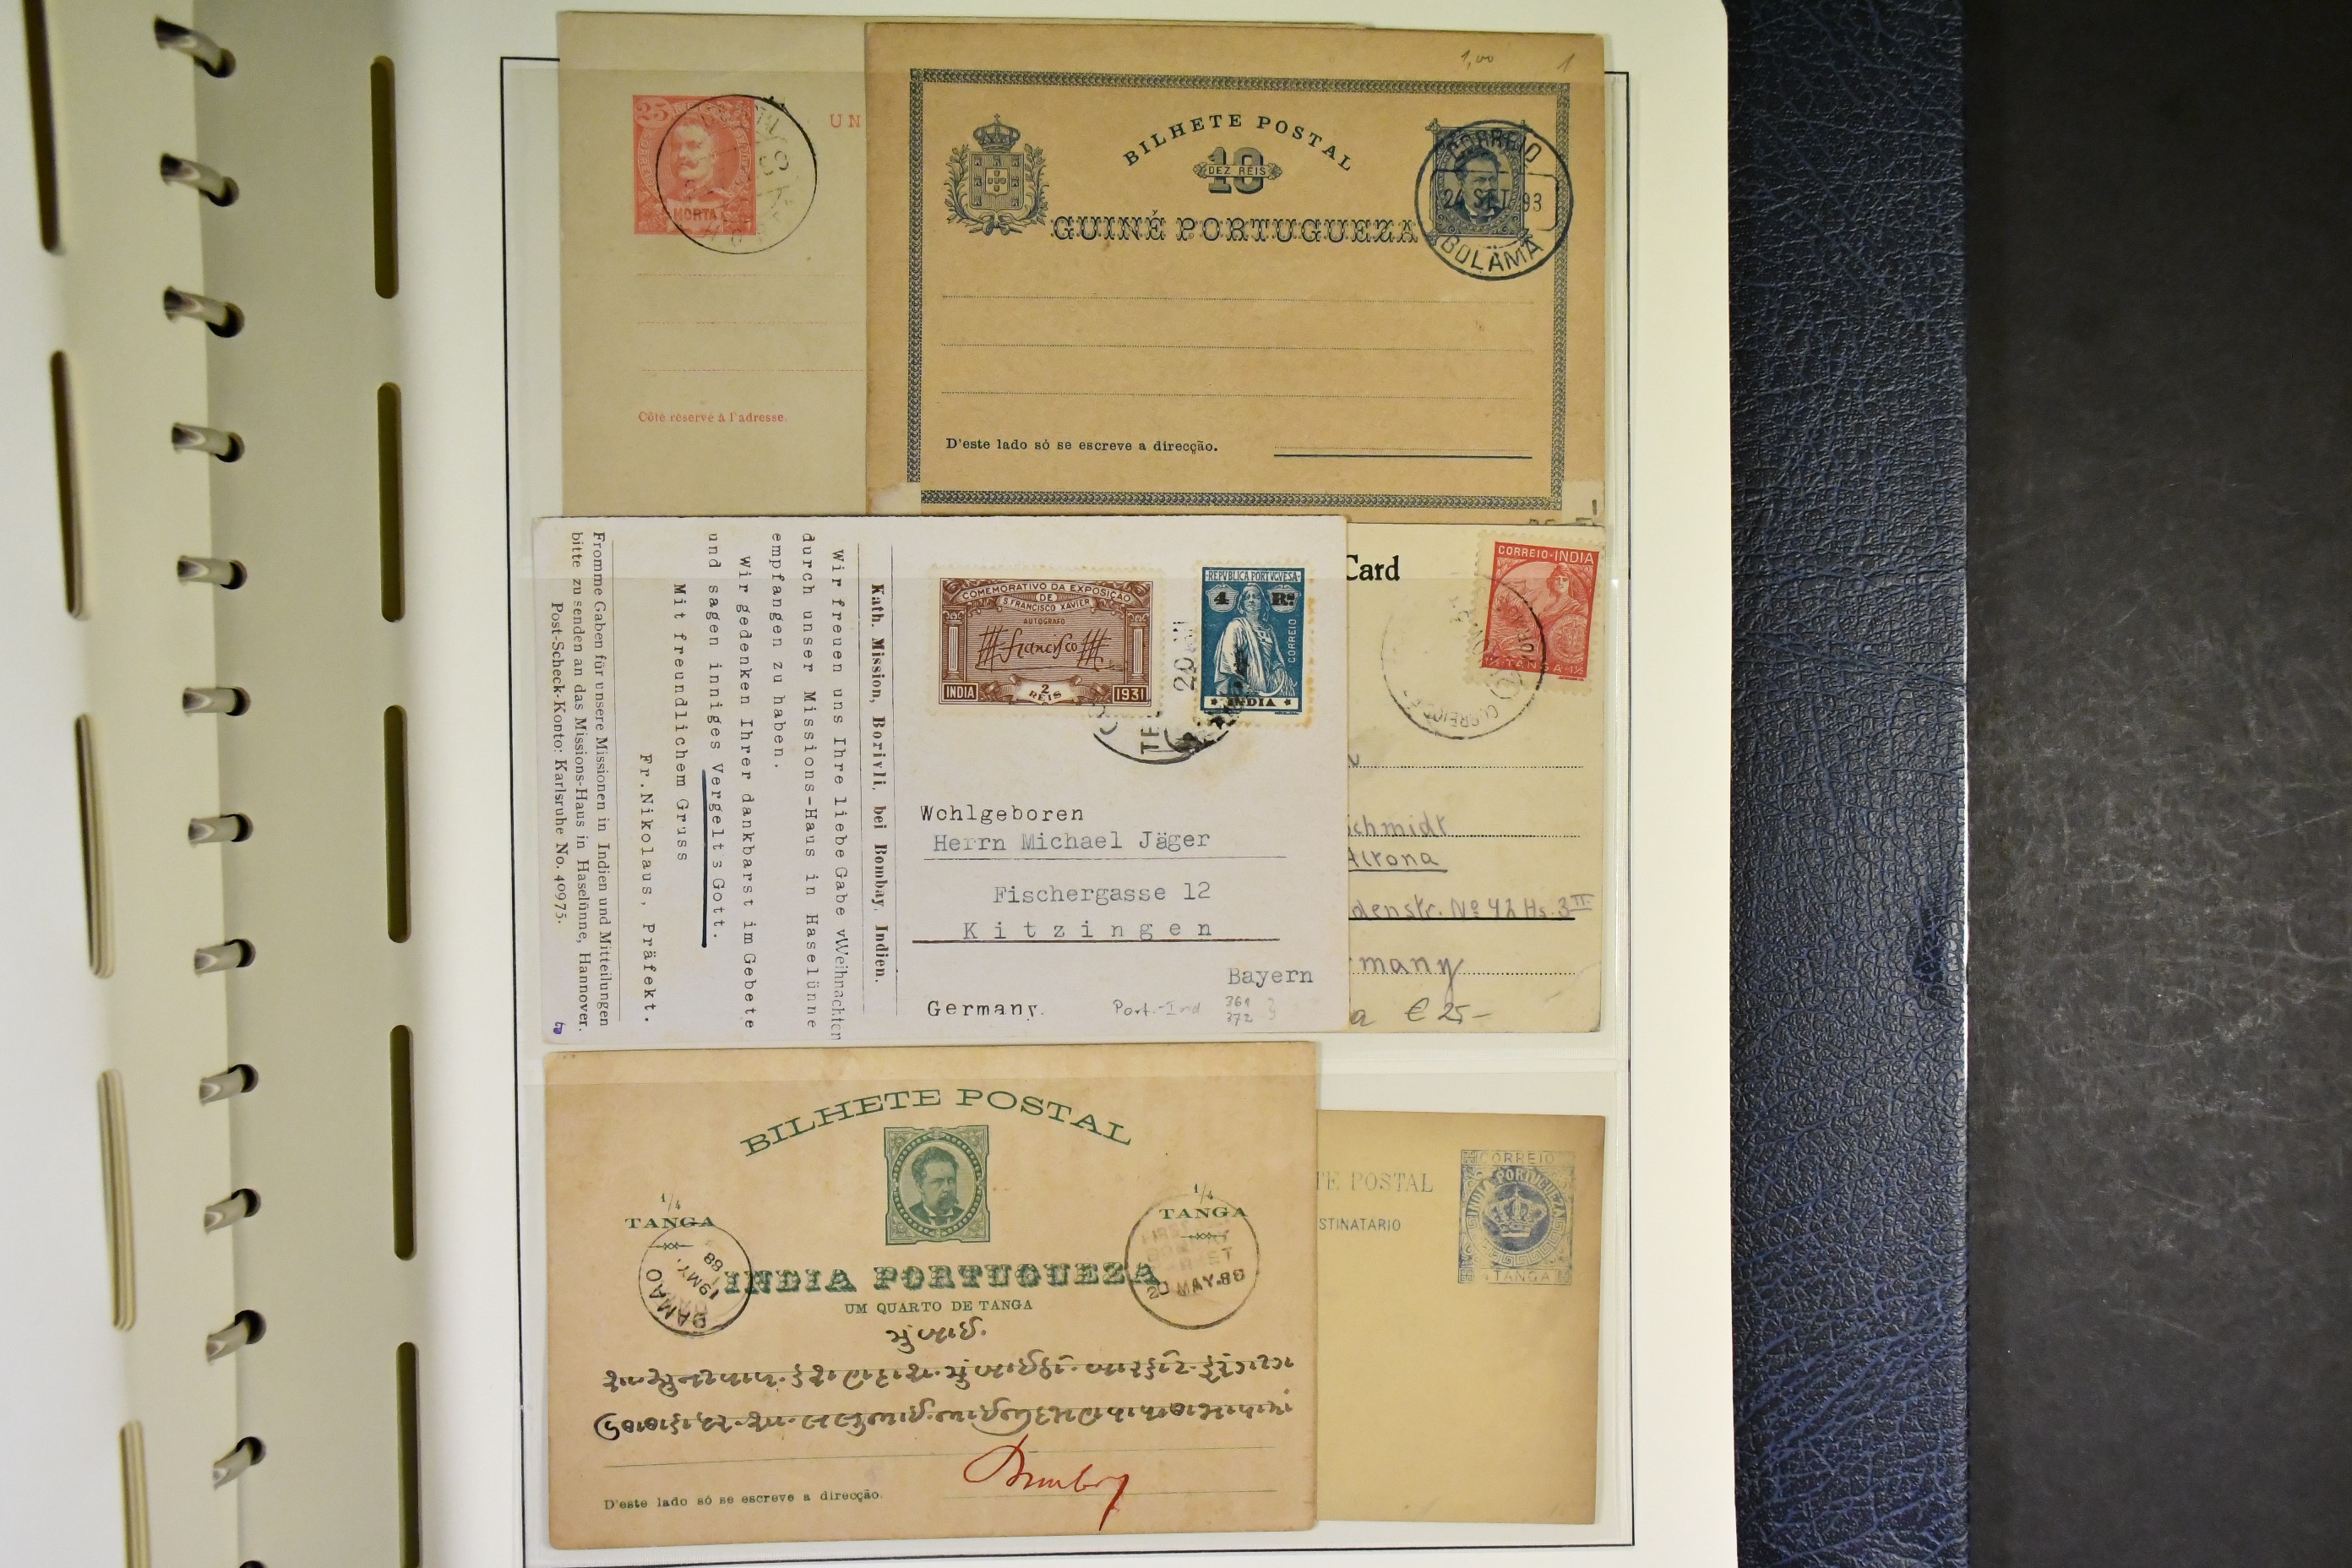 25
HORTA
UN
Côté réservé à l'adresse.
1,00 1
BILHETE POSTAL
10
DEZ REIS
GUINÉ PORTUGUEZA
CORREIO
24 SET 93
BOLAMA
D'este lado só se escreve a direcção.
Card
CORREIO-INDIA
1½-TANGA-1½
chmidt
Altona
denstr. No 42 Hs. 3 II
many
a € 25-
Fromme Gaben für unsere Missionen in Indien und Mitteilungen
bitte zu senden an das Missions-Haus in Haselünne, Hannover.
Post-Scheck-Konto: Karlsruhe No. 40975.
Kath. Mission, Borivli, bei Bombay, Indien.
Wir freuen uns Ihre liebe Gabe vWeihnachten
durch unser Missions-Haus in Haselünne
empfangen zu haben.
Wir gedenken Ihrer dankbarst im Gebete
und sagen inniges Vergelts Gott.
Mit freundlichem Gruss
Fr.Nikolaus, Präfekt.
COMEMORATIVO DA EXPOSIÇÃO
DE
S. FRANCISCO XAVIER
AUTOGRAFO
Francisco
INDIA 2 REIS 1931
REPVBLICA PORTVGVESA
4 Rs
CORREIO
INDIA
Wohlgeboren
Herrn Michael Jäger
Fischergasse 12
Kitzingen
Bayern
Germany.
Port.-Ind 361
372
BILHETE POSTAL
1/4
TANGA
1/4
TANGA
DAMAO
19 MY.
88
20 MAY.88
INDIA PORTUGUEZA
UM QUARTO DE TANGA
Bombay
D'este lado só se escreve a direcção.
TE POSTAL
STINATARIO
CORREIO
INDIA PORTUGUEZA
TANGA